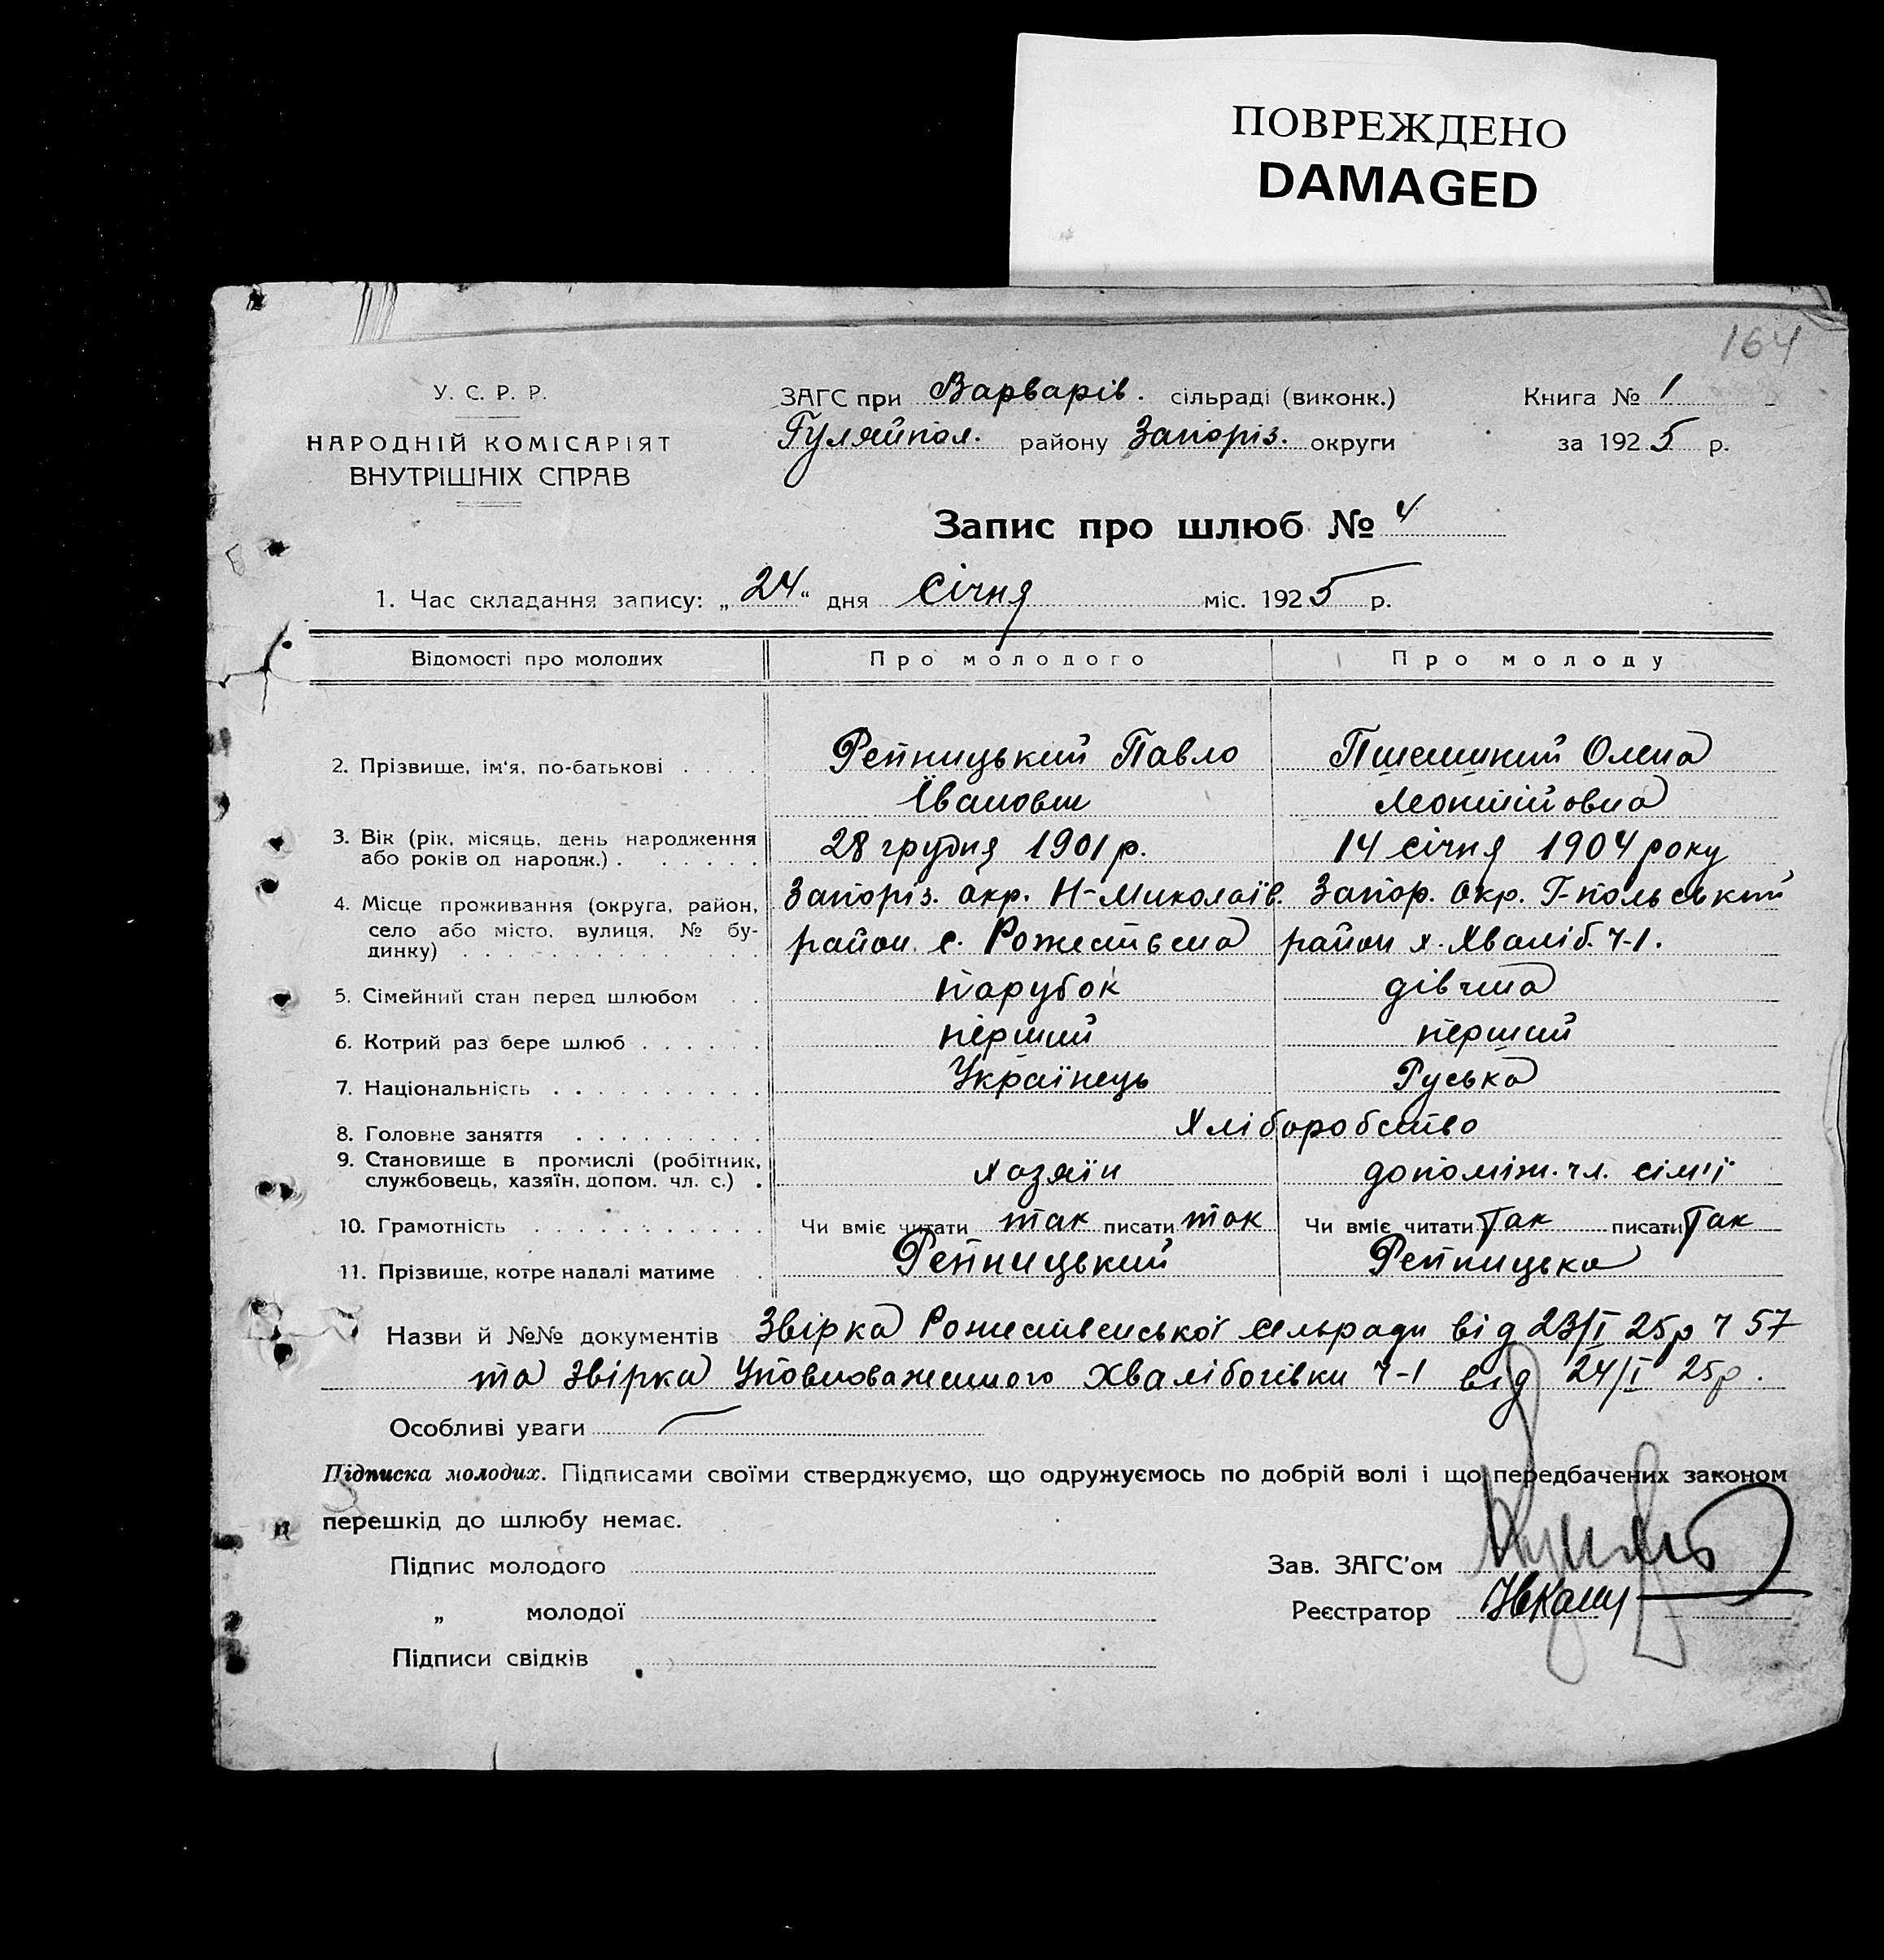 ПОВРЕЖДЕНО
DAMAGED
164
У. С. Р. Р.
НАРОДНІЙ КОМІСАРІЯТ
ВНУТРІШНІХ СПРАВ
ЗАГС при Варварів. сільраді (виконк.)
Гуляйпол. району Запоріз. округи
Книга № 1
за 1925 р.
Запис про шлюб № 4
1. Час складання запису: „24“ дня Січня міс. 1925 р.
Відомості про молодих Про молодого Про молоду
2. Прізвище, ім'я, по-батькові . . . . Репницький Павло Олена
Івановии
3. Вік (рік, місяць, день народження
або років од народж.) . . . . . . 28 грудня 1901 р. 14 січня 1904 року
4. Місце проживання (округа, район, Запоріз. окр. Н-Миколаїв. Запор. окр. Г-польський
село або місто, вулиця, № бу-
динку) . . . . . . . . . . . . . район с. Рожествена район х. Хваліб. ч-1.
5. Сімейний стан перед шлюбом . . парубок дівчина
6. Котрий раз бере шлюб . . . . . . перший перший
7. Національність . . . . . . . . . . Українець Руська
8. Головне заняття . . . . . . . . . Хліборобство
9. Становище в промислі (робітник,
службовець, хазяїн, допом. чл. с.) . хозяїн допоміж. чл. сім'ї
10. Грамотність . . . . . . . . . . . Чи вміє читати так писати так Чи вміє читати так писати так
11. Прізвище, котре надалі матиме . . Репницький Репницька
Назви й №№ документів Звірка Рожественської сельради від 23/I 25р ч 57
та звірка Уповноваженного Хвалібогівки ч-1 від 24/I 25р.
Особливі уваги
Підписка молодих. Підписами своїми стверджуємо, що одружуємось по добрій волі і що передбачених законом
перешкід до шлюбу немає.
Підпис молодого
„ молодої
Підписи свідків
Зав. ЗАГС'ом
Реєстратор